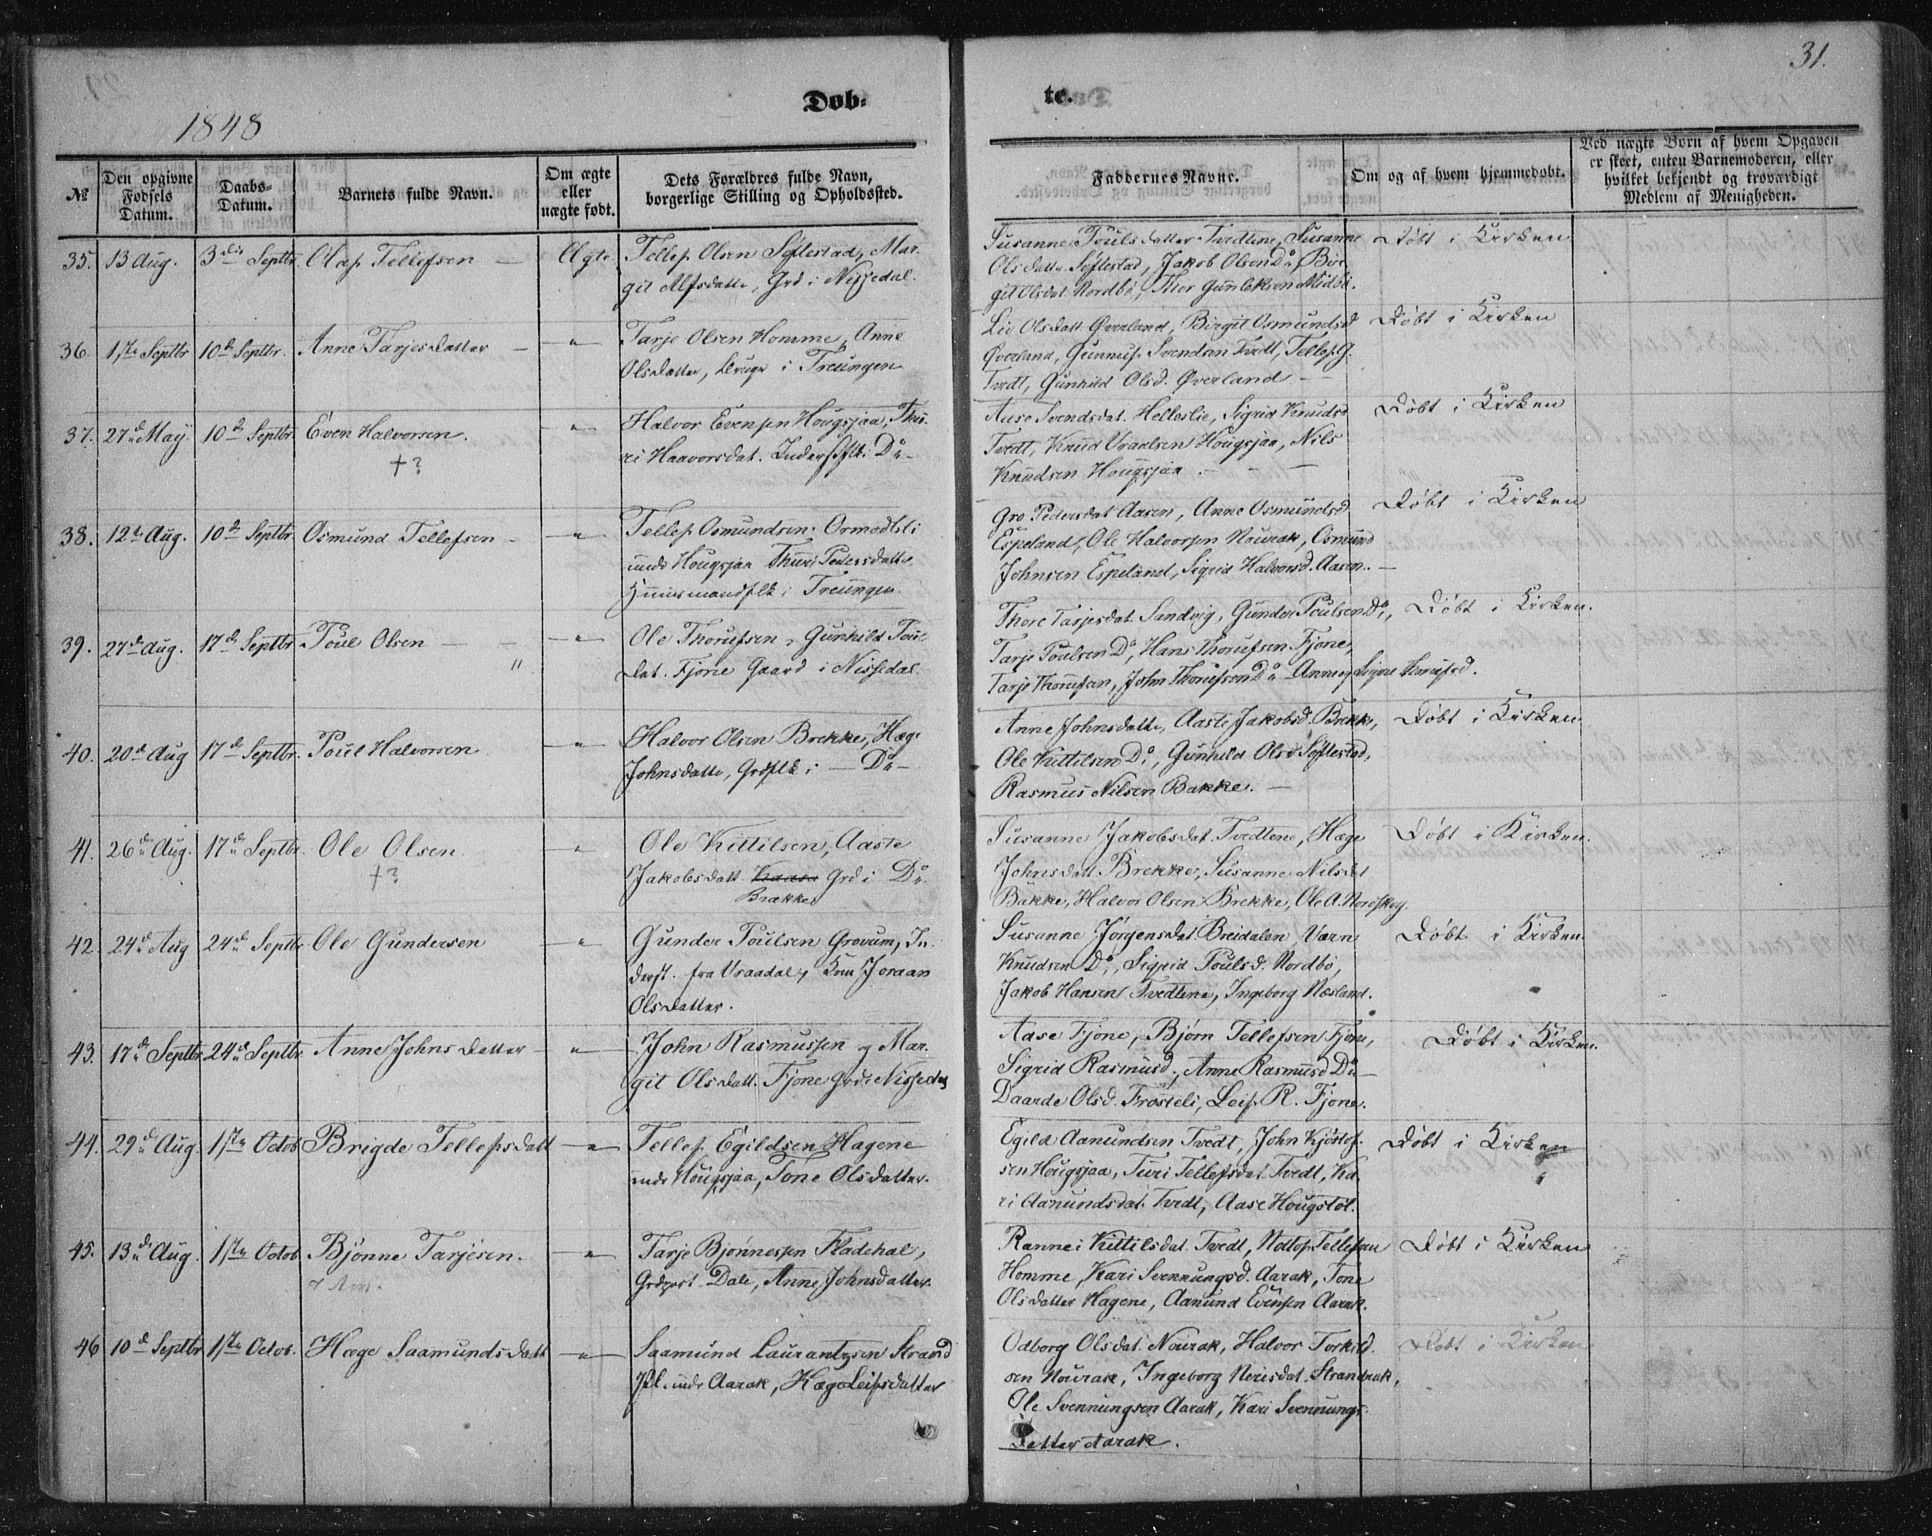 31.
1848
Døb-
te.
№
Den opgivne Fødsels Datum.
Daabs-Datum.
Barnets fulde Navn.
Om ægte eller uægte født.
Dets Forældres fulde Navn, borgerlige Stilling og Opholdssted.
Faddernes Navne.
Om og af hvem hjemmedøbt.
Ved uægte Børn af hvem Opgaven er skeet, enten Barnemoderen, eller hvilket bekjendt og troværdigt Medlem af Menigheden.
35. 13 Aug. 3die Septbr. Olaf Tellefsen Ægte Tellef Olsen Søftestad, Mar-
git Alfsdatter, Grd i Nissedal.
Susanne Poulsdatter Tvedtene, Susanne
Olsdatter Søftestad, Jakob Olsen Do, Bir-
git Olsdat. Nordbø, Thor Gunleksen Midbø.
Døbt i Kirken
36. 1ste Septbr 10de Septbr. Anne Tarjesdatter — " — Tarje Olsen Homme, Anne
Olsdatter, Bruger i Treungen
Liv Olsdatt. Øverland, Birgit Osmundsd
Øverland, Gunnuf Svendsen Tvedt, Tellef G.
Tvedt, Gunhild Olsd. Øverland —
Døbt i Kirken
37. 27de May. 10de Septbr. Even Halvorsen. — " — Halvor Evensen Hougsjaa, Thu-
†?
ri Haavorsdat. Inderstflk i Do —
Aase Svendsdat. Helleslie, Sigrid Knudsd
Tvedt, Knud Vraalsen Hougsjaa, Nils
Knudsen Hougsjaa — — —
Døbt i Kirken
38. 12te Aug. 10de Septbr. Osmund Tellefsen — " — Tellef Osmundsen Ormodtsli
unde Hougsjaa Thuri Pedersdatter
Huusmandsflk i Treungen.
Gro Pedersdat Aasen, Anne Osmundsd
Espeland, Ole Halvorsen Nourak, Osmund
Johnsen Espeland, Sigrid Halvorsd. Aasen. —
Døbt i Kirken
39. 27de Aug. 17de Septbr. Poul Olsen — " — Ole Thorufsen, Gunhild Poul-
dat. Fjone Gaard i Nissedal
Thore Tarjesdat Sandvig, Gunder Poulsen Do,
Tarje Poulsen Do, Hans Thorufsen Fjone,
Tarje Thorufsen, John Thorufsen Do Anne og Signe Thorufsd.
Døbt i Kirken.
40. 20de Aug 17de Septbr. Poul Halvorsen — " — Halvor Olsen Brekke, Hæge
Johnsdatter, Grdflk i — Do —
Anne Johnsdatter, Aaste Jakobsd. Bakke,
Ole Kittilsen Do, Gunhild Olsd Søftestad,
Rasmus Nilsen Bakke. —
Døbt i Kirken.
41. 26de Aug. 17de Septbr. Ole Olsen " Ole Kittilsen, Aaste
†?
Jakobsdatt. Grd i Do.
Brække
Susanne Jakobsdat. Tvedtene, Hæge
Johnsdatt Brekke, Susanne Nilsdat
Bakke, Halvor Olsen Brekke, Ole A. Nordskog.
Døbt i Kirken.
42. 24de Aug 24de Septbr Ole Gundersen " Gunder Poulsen Grovum, In-
derst. fra Vraadal, Kone Joraan
Olsdatter.
Susanne Jørgensdat. Breidalen, Værn
Knudsen Do, Sigrid Poulsd. Nordbø,
Jakob Hansen Tvedtene, Ingeborg Næsland.
Døbt i Kirken.
43. 17de Septbr. 24de Septbr. Anne Johnsdatter — " — John Rasmussen og Mar-
git Olsdatt. Fjone Grd i Nissedal
Aase Fjone, Bjørn Tellefsen Fjone,
Sigrid Rasmusd., Anne Rasmusd Do —
Daarde Olsd. Frøsteli, Leif R. Fjone.
Døbt i Kirken.
44. 29de Aug. 1ste Octob. Brigde Tellefsdatt — " — Tellef Egildsen Hagene
unde Hougsjaa, Tone Olsdatter.
Egild Aanundsen Tvedt, John Kjøstof-
sen Hougsjaa, Turi Tellefsdat. Tvedt, Ka-
ri Aanundsdat. Tvedt, Aase Hougstøl.
Døbt i Kirken
45. 13de Aug. 1ste Octob. Bjønne Tarjesen. " Tarje Bjønnessen Fladehal,
Grdpart Dale, Anne Johnsdatter.
Rannei Kittilsdat. Tvedt, Nottof Tellefsen
Homme, Kari Svennungsd. Aarak, Tone
Olsdatter Hagene, Aanund Evensen Aarak.
Døbt i Kirken
46 10de Septbr 1ste Octob. Hæge Saamundsdatt — " — Saamund Laurantzsen Strand
Pl. unde Aarak, Hæge Leifsdatter
Odborg Olsdat. Nourak, Halvor Torkild-
sen Nourak, Ingeborg Neridsdat. Strandrak,
Ole Svennungsen Aarak, Kari Svennungs-
datter Aarak.
Døbt i Kirken